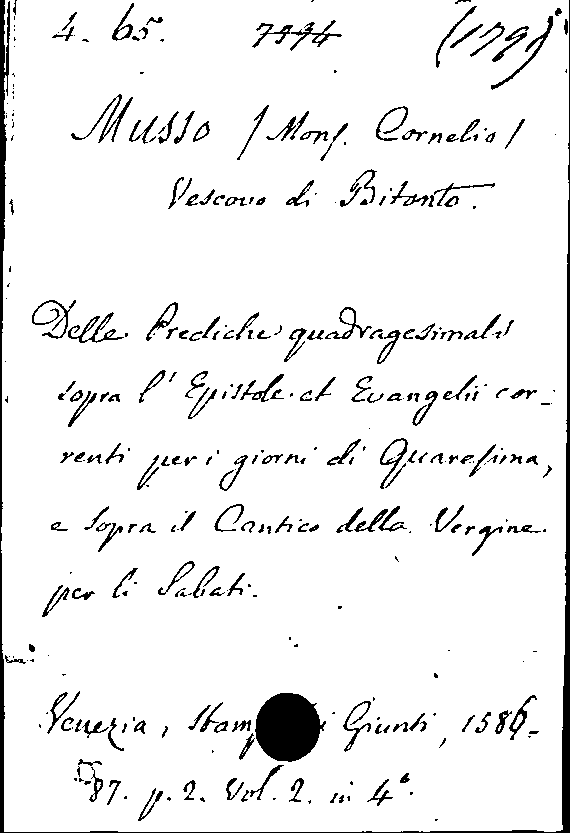 4. 65. 7994 (1791)
Musso / Monſ. Cornelio /
Vescovo di Bitonto.
Delle Prediche quadragesimali
sopra l' Epistole et Evangelii cor-
renti per i giorni di Quareſima,
e sopra il Cantico della Vergine
per li Sabati.
Venezia, Stamp i Giunti, 1586-
87. p. 2. Vol. 2. in 4°.